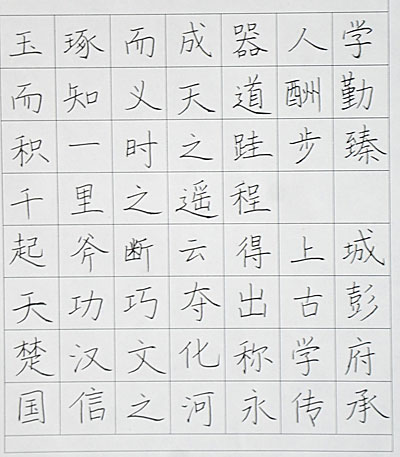 玉琢而成器人学
而知义天道酬勤
积一时之跬步臻
千里之遥程
起斧断云得上城
天功巧夺出古彭
楚汉文化称学府
国信之河永传承